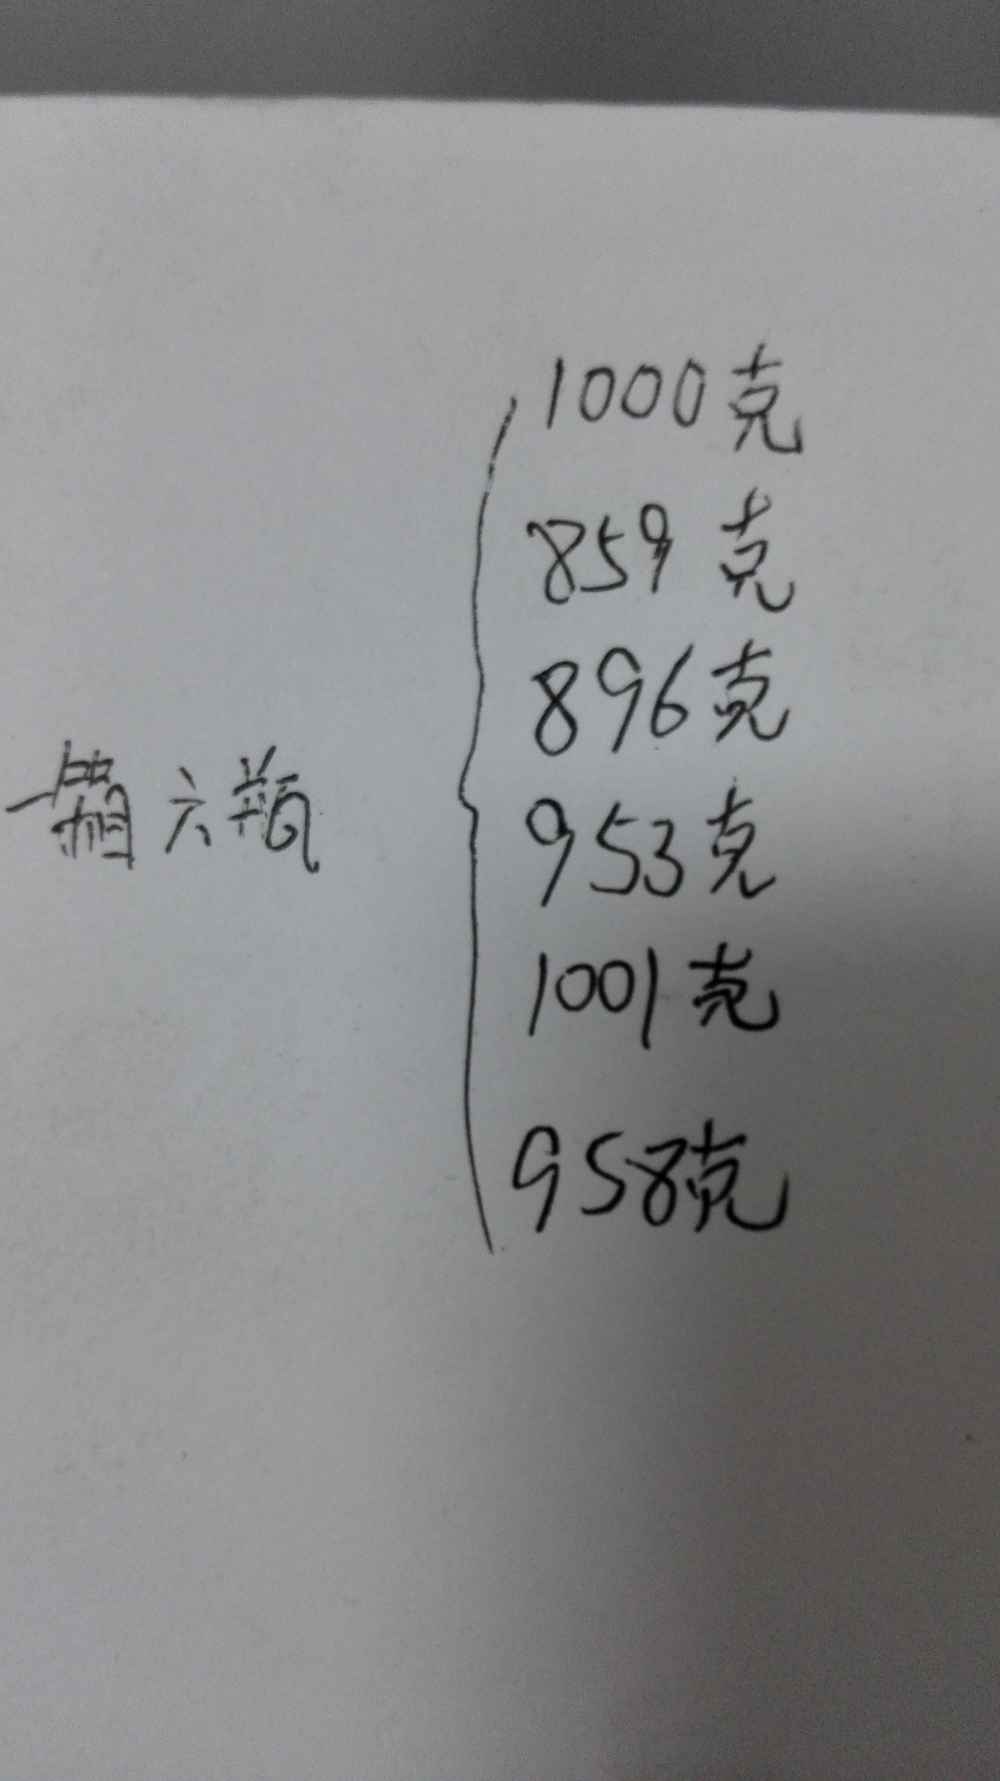 一箱六瓶
1000克
859克
896克
953克
1001克
958克